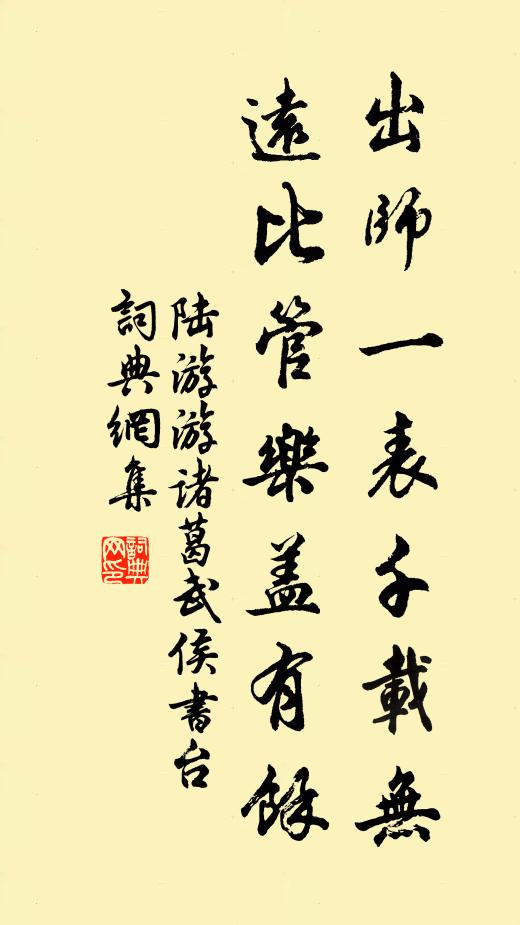 出师一表千載無
遠比管樂盖有餘
陆游游诸葛武侯書台
詞典網集
詞典网印